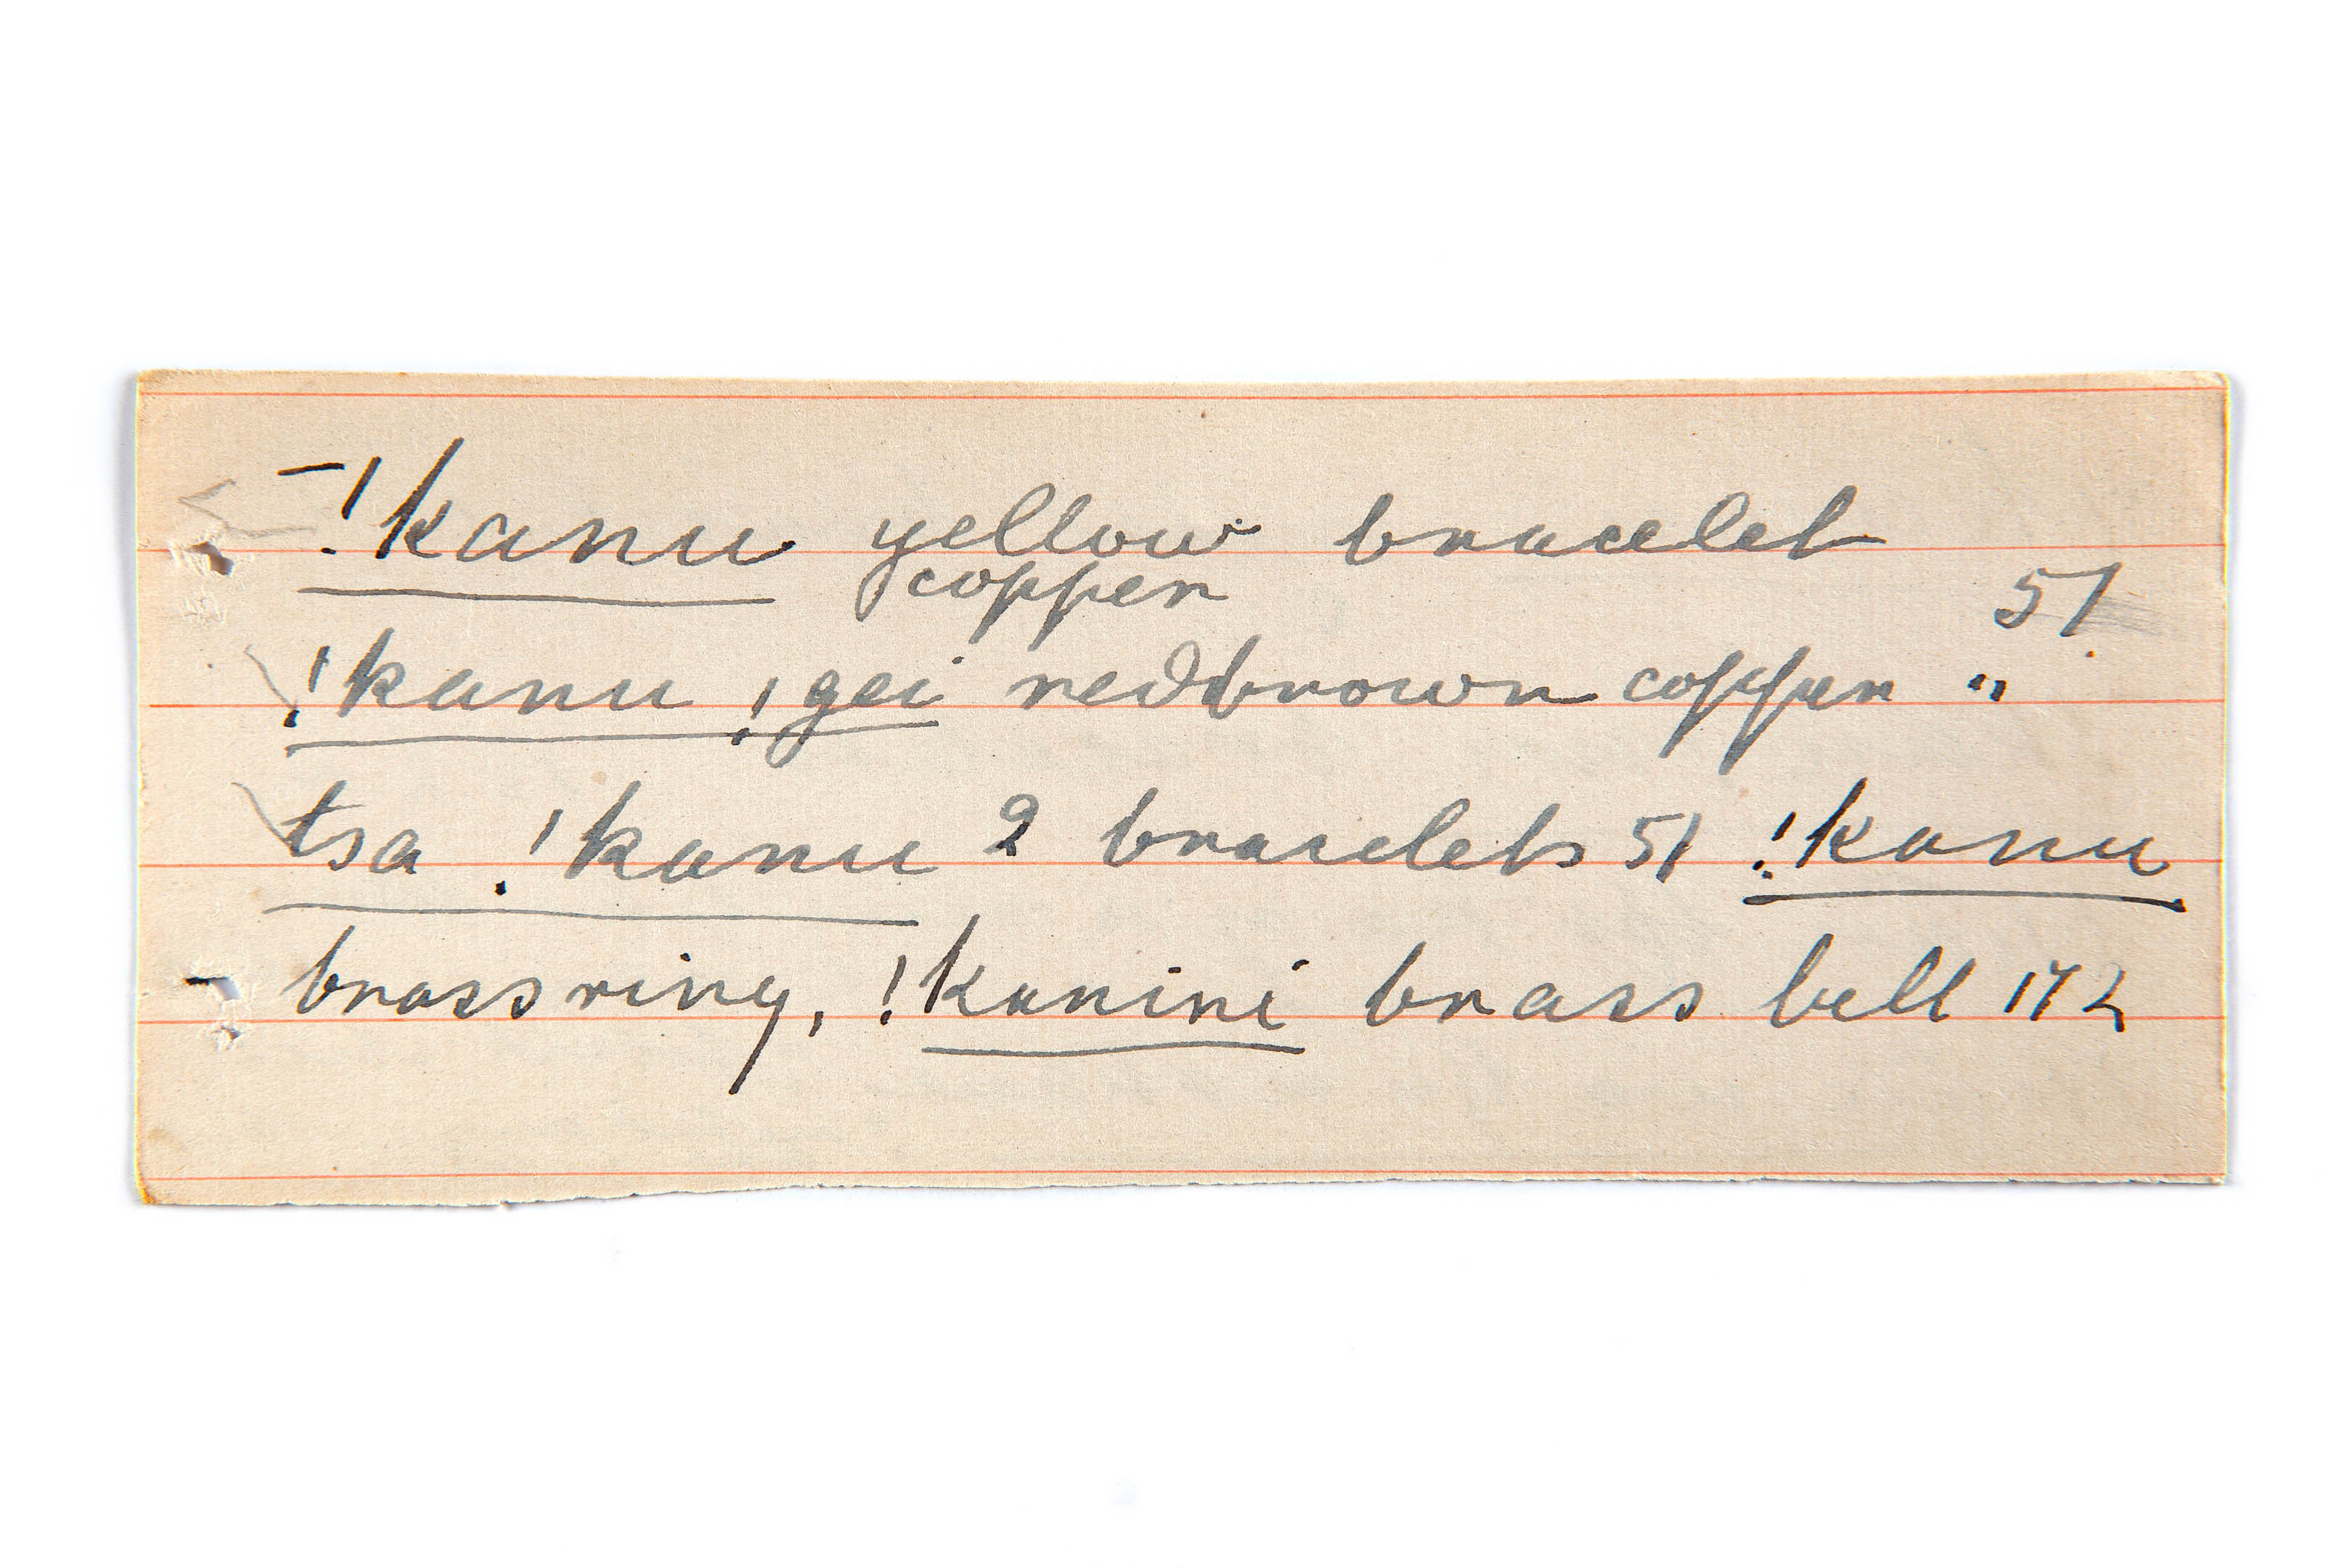 – !kanu yellow bracelet
copper
51
!kanu !gei redbrown copper "
tsa !kanu 2 bracelets 51 !kanu
brassring, !kanini brass bell 172